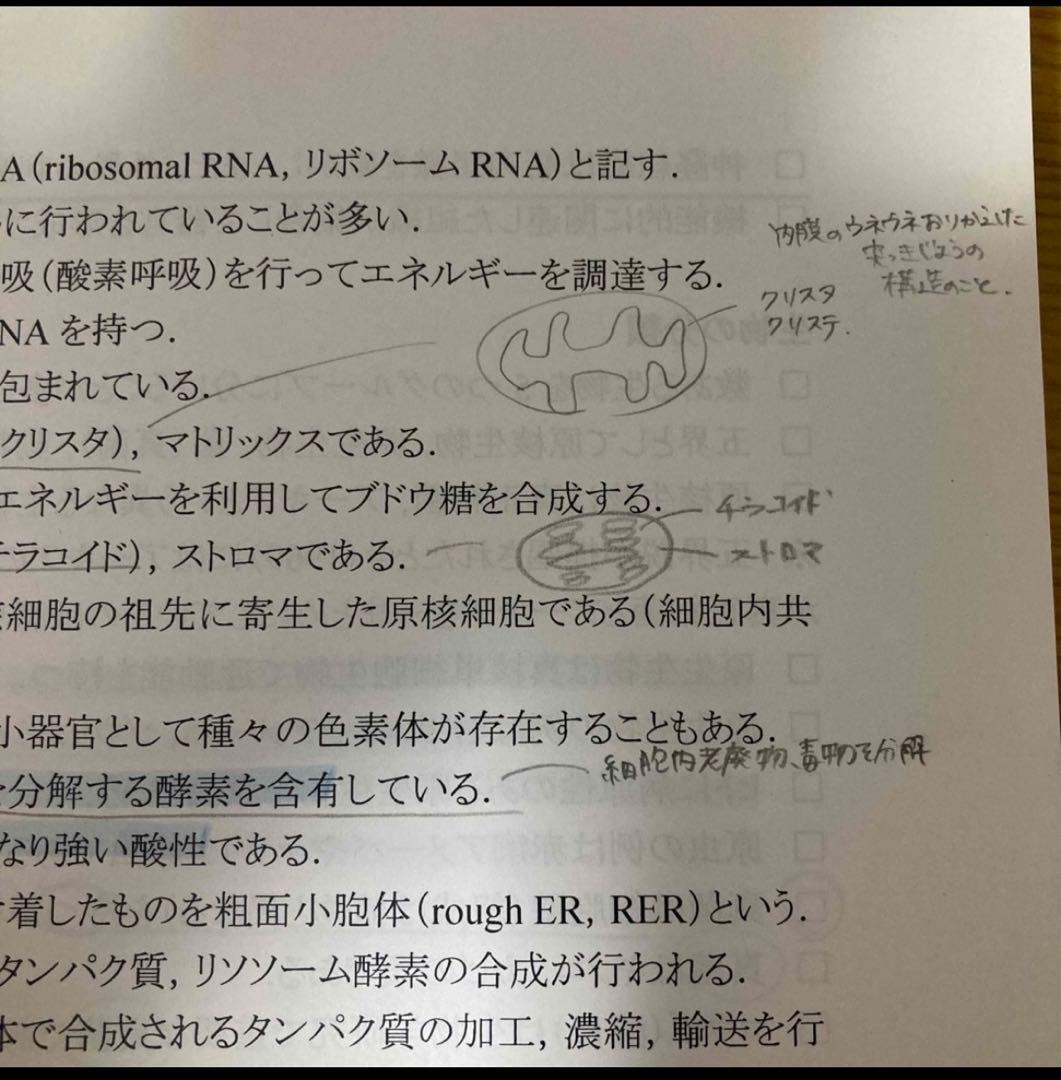 A(ribosomal RNA, リボソーム RNA)と記す.
に行われていることが多い.
内膜のウネウネおりかえした
突っきじょうの
構造のこと.
吸(酸素呼吸)を行ってエネルギーを調達する.
クリスタ
クリステ.
NA を持つ.
包まれている.
クリスタ), マトリックスである.
エネルギーを利用してブドウ糖を合成する.
チラコイド
テラコイド), ストロマである.
ストロマ
細胞の祖先に寄生した原核細胞である(細胞内共
小器官として種々の色素体が存在することもある.
細胞内老廃物、毒物を分解
分解する酵素を含有している.
なり強い酸性である.
着したものを粗面小胞体(rough ER, RER)という.
タンパク質, リソソーム酵素の合成が行われる.
体で合成されるタンパク質の加工, 濃縮, 輸送を行